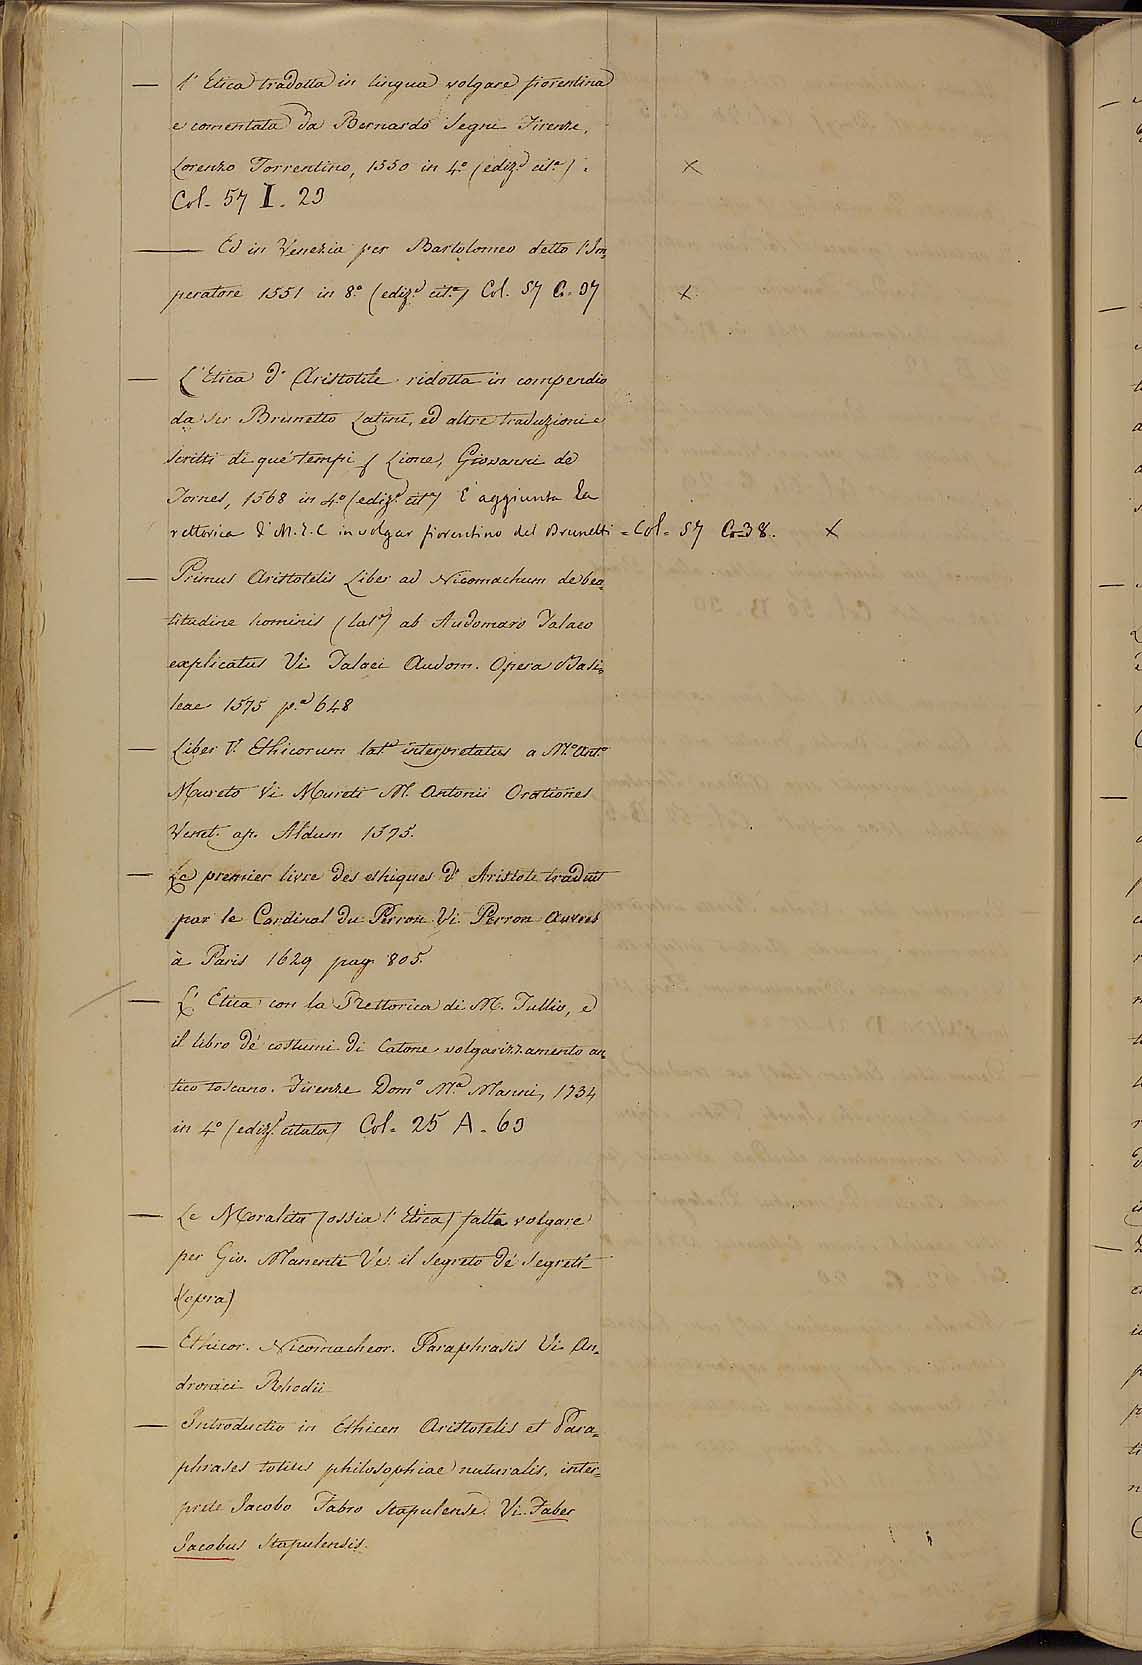 — l'Etica tradotta in lingua volgare fiorentina
e comentata da Bernardo Segni Firenze,
Lorenzo Torrentino, 1550 in 4.° (ediz.e cit.a). ×
Col. 57 I. 29
— Ed in Venezia per Bartolomeo detto l'Im,
peratore 1551 in 8.° (ediz.e cit.a) Col. 57 C. 37 ×
— L'Etica d'Aristotile ridotta in compendio
da ser Brunetto Latini, ed altre traduzioni e
scritti di que' tempi Lione, Giovanni de
Tornes, 1568 in 4.° (ediz.e cit.a) È aggiunta la
rettorica d'M.T.C in volgar fiorentino del Brunetti = Col= 57 C=38. ×
— Primus Aristotelis Liber ad Nicomachum de bea,
titudine hominis (lat.e) ab Audomaro Talaeo
explicatus Vi Talaei Audom. Opera Basi=
leae 1575 p.a 648
— Liber V. Ethicorum lat.e interpretatus a M.° Ant.°
Mureto Vi Mureti M. Antonii Orationes
Venet. ap. Aldum 1575.
— Le premier livre des ethiques d'Aristote traduit
par le Cardinal du Perron Vi Perron Auvres
à Paris 1629 pag. 805.
— L'Etica con la Rettorica di M. Tullio, e
il libro de' costumi di Catone volgarizzamento an,
tico toscano. Firenze Dom.° M.a Manni, 1734
in 4.° (ediz.e citata) Col= 25 A. 63
— Le Moralita (ossia l'Etica) fatta volgare
per Gio. Manenti Ve. il segreto de' Segreti
(opra)
— Ethicor. Nicomacheor. Paraphrasis Vi An,
dronici Rhodii
— Introductio in Ethicen Aristotelis et Para=
phrases totius philosophiae naturalis, inter=
prete Jacobo Fabro Stapulense. Vi. Faber
Jacobus Stapulensis.